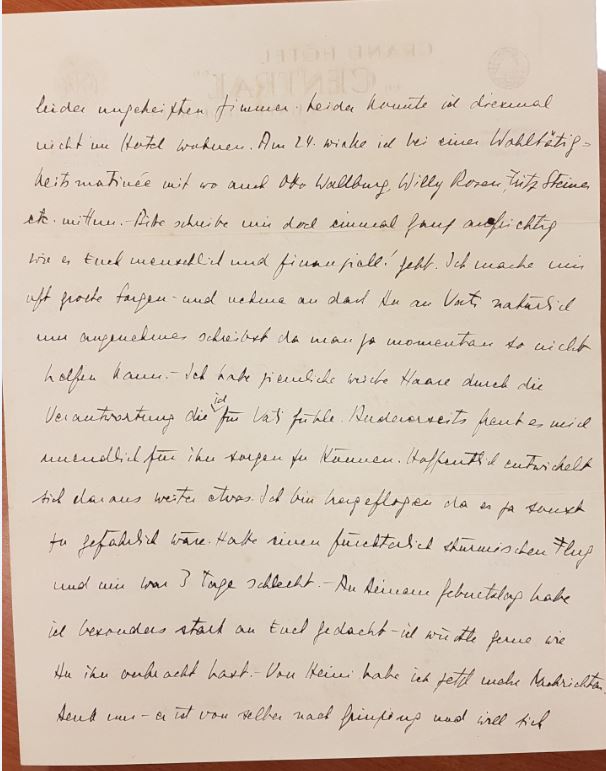 GRAND HÔTEL
CENTRAL
leider ungeheizten Zimmer. Leider konnte ich diesmal
nicht im Hotel wohnen. Am 24. wirke ich bei einer Wohltätig=
keitsmatinée mit wo auch Otto Wallburg, Willy Rosen, Fritz Steiner
etc. mittun. - Bitte schreibe mir doch einmal ganz aufrichtig
wie es Euch menschlich und finanziell! geht. Ich mache mir
oft große Sorgen - und nehme an dass Du an Vati natürlich
nur angenehmes schreibst da man ja momentan so nicht
helfen kann. - Ich habe ziemliche weiße Haare durch die
Verantwortung die ich für Vati fühle. Andererseits freut es mich
unendlich für ihn sorgen zu können. Hoffentlich entwickelt
sich daraus weiter etwas. Ich bin hergeflogen da es ja sonst
zu gefährlich wäre. Hatte einen fürchterlich stürmischen Flug
und mir war 3 Tage schlecht. - An Deinem Geburtstag habe
ich besonders stark an Euch gedacht - ich wüsste gerne wie
Du ihn verbracht hast. - Von Heini habe ich jetzt mehr Nachrichten
Denk nur - er ist von selber nach und will sich